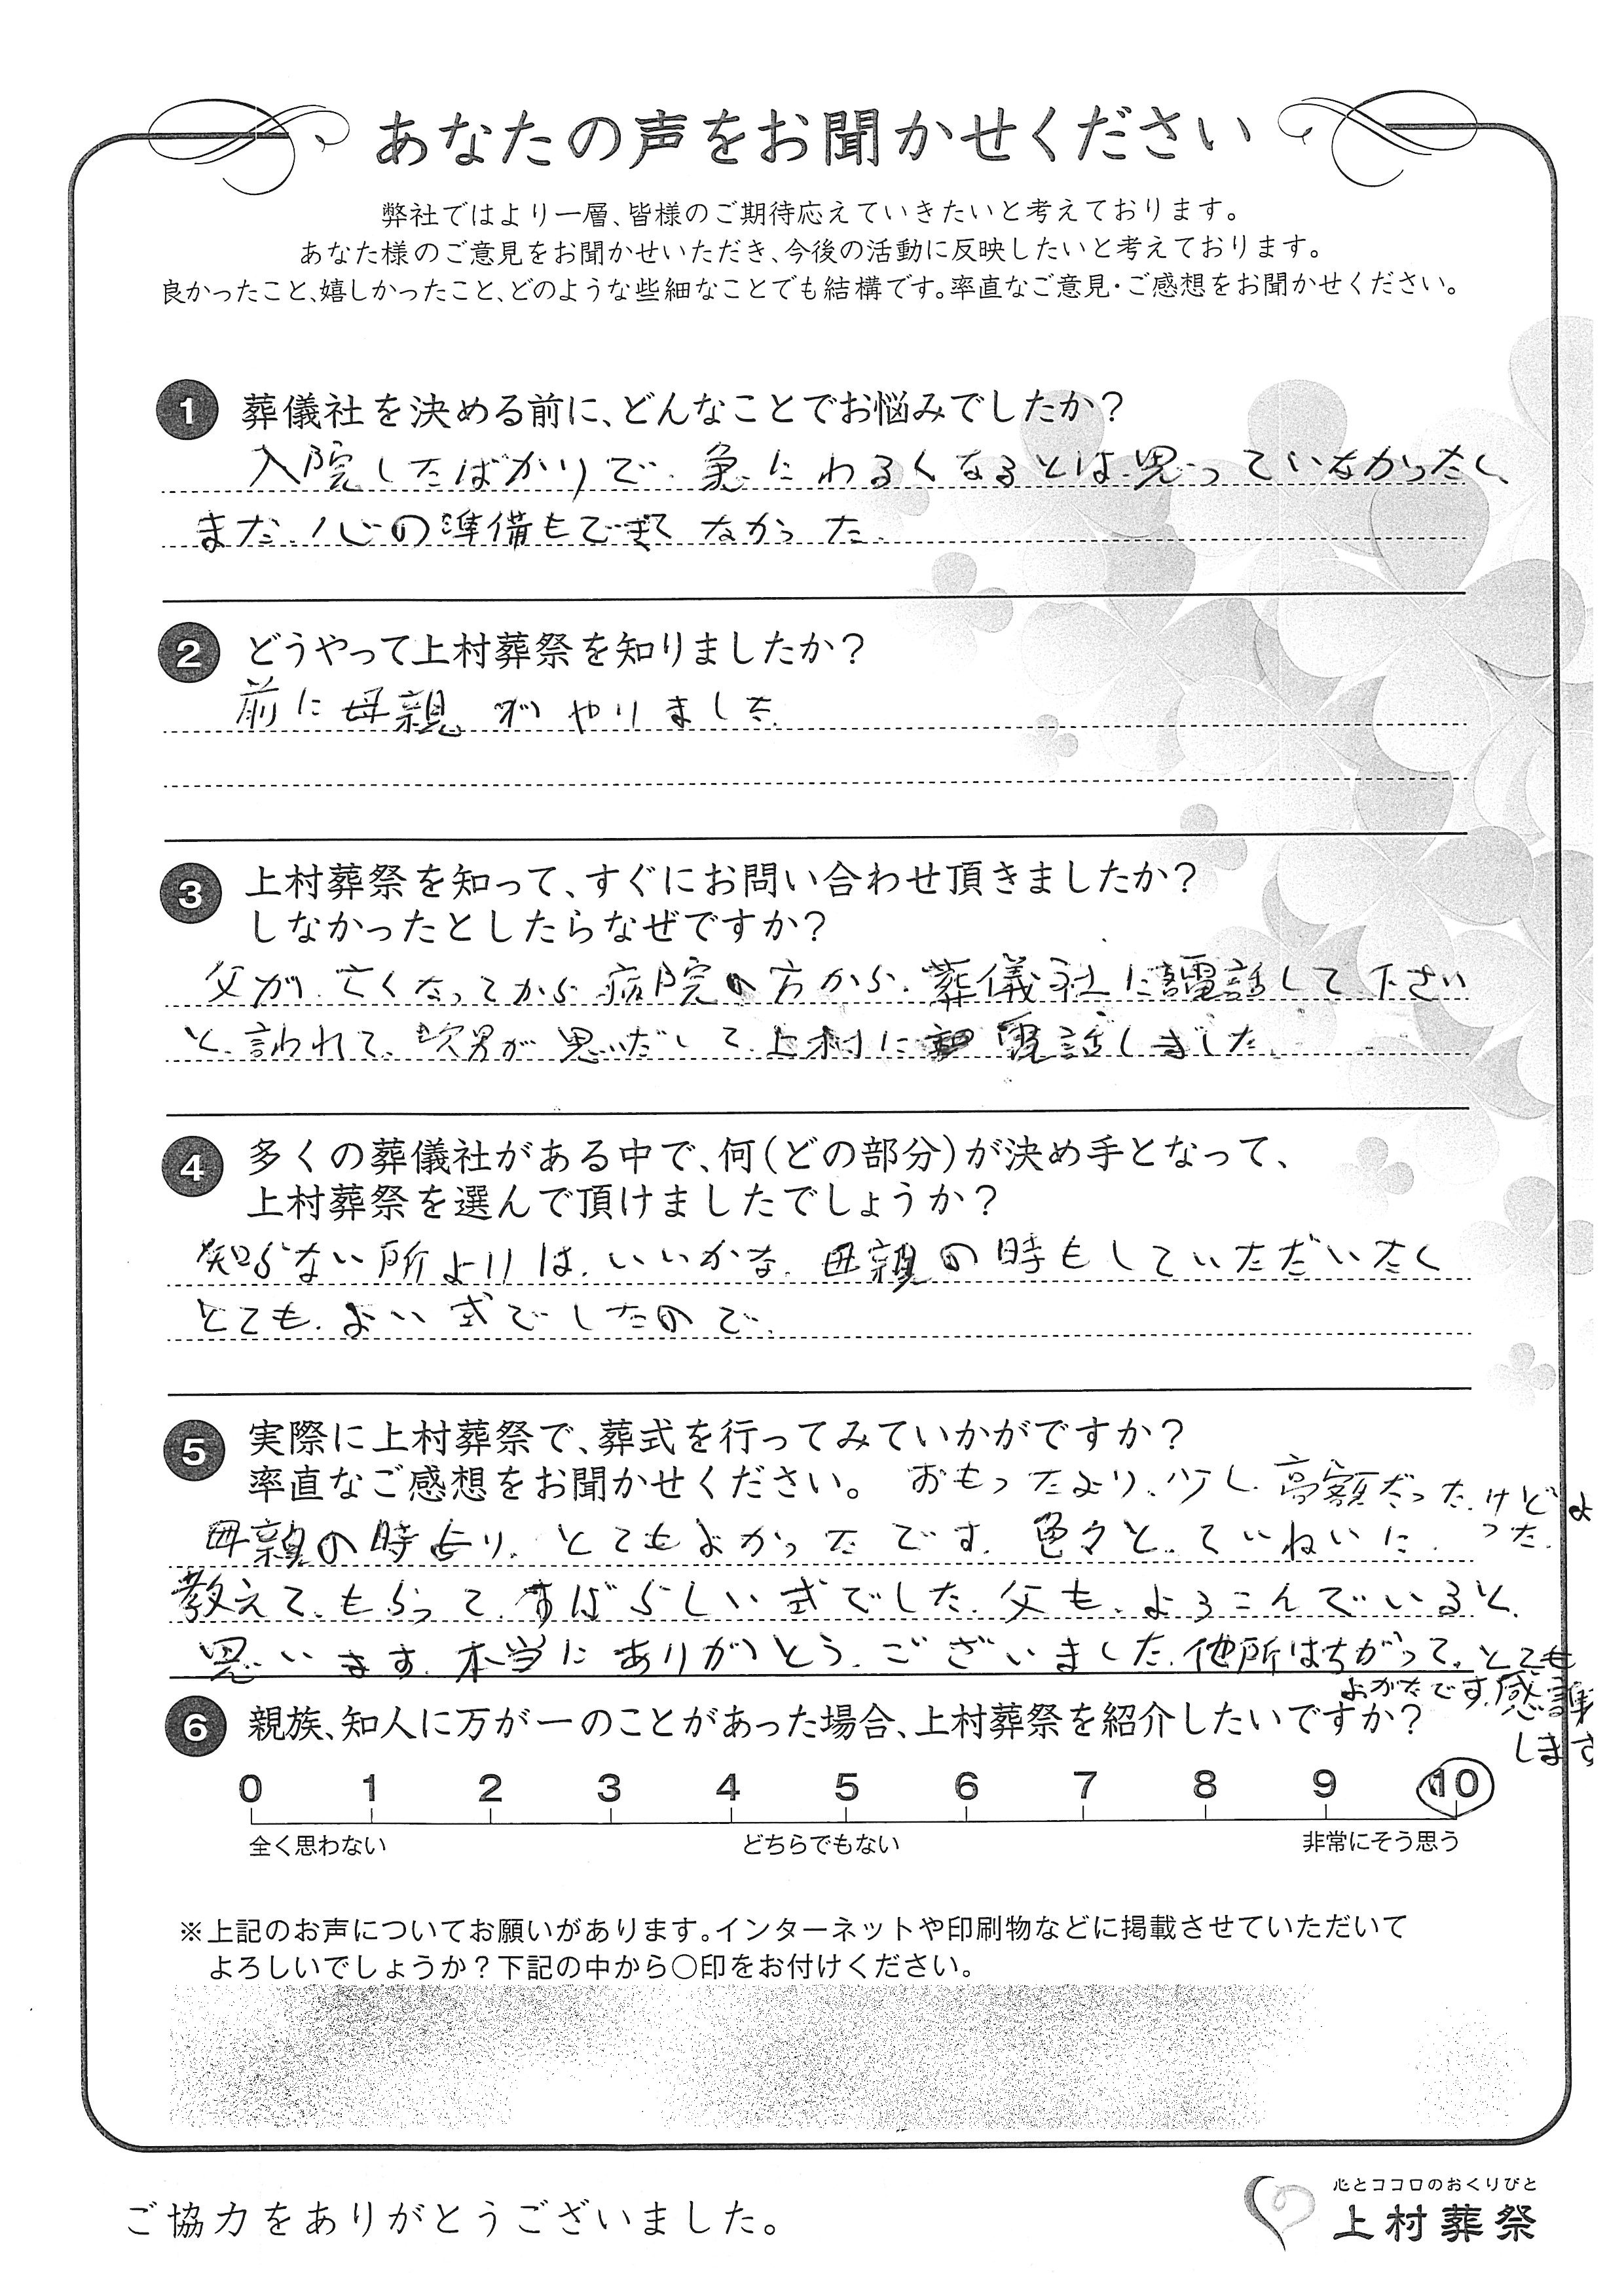 あなたの声をお聞かせください
弊社ではより一層、皆様のご期待応えていきたいと考えております。
あなた様のご意見をお聞かせいただき、今後の活動に反映したいと考えております。
良かったこと、嬉しかったこと、どのような些細なことでも結構です。率直なご意見・ご感想をお聞かせください。
1 葬儀社を決める前に、どんなことでお悩みでしたか?
入院したばかりで、急にわるくなるとは思っていなかったし、
まだ、心の準備もできてなかった。
2 どうやって上村葬祭を知りましたか?
前に母親がやりました
3 上村葬祭を知って、すぐにお問い合わせ頂きましたか?
しなかったとしたらなぜですか?
父が亡くなってから病院の方から、葬儀社に電話して下さい
と、言われて、次男が思いだして、上村に電話しました。
4 多くの葬儀社がある中で、何(どの部分)が決め手となって、
上村葬祭を選んで頂けましたでしょうか?
知らない所よりは、いいかな、母親の時もしていただいたし
とても、よい式でしたので、
5 実際に上村葬祭で、葬式を行ってみていかがですか?
率直なご感想をお聞かせください。 おもったより、少し、高額だった、けどよ
った。
母親の時より、とてもよかったです。色々と、ていねいに、
教えて、もらって、すばらしい式でした、父も、よろこんでいると、
思います。本当にありがとう、ございました、他所はちがって、とても
よかたです。感謝
します
6 親族、知人に万が一のことがあった場合、上村葬祭を紹介したいですか?
0 1 2 3 4 5 6 7 8 9 10
全く思わない どちらでもない 非常にそう思う
※上記のお声についてお願いがあります。インターネットや印刷物などに掲載させていただいて
よろしいでしょうか?下記の中から○印をお付けください。
ご協力をありがとうございました。
心とココロのおくりびと
上村葬祭